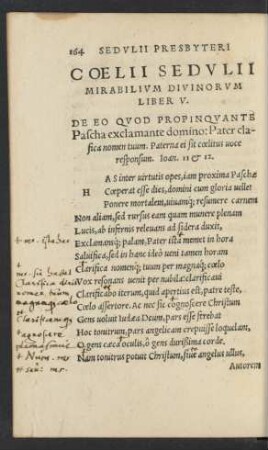 164 SEDVLII PRESBYTERI
COELII SEDVLII
MIRABILIVM DIVINORVM
LIBER V.
DE EO QVOD PROPINQVANTE
Pascha exclamante domino: Pater cla-
rifica nomen tuum. Paterna ei sit cœlitus uoce
responsum. Ioan. 11 & 12.
HAS inter uirtutis opes, iam proxima Paschæ
Cœperat esse dies, domini cum gloria uellet
Ponere mortalem, uiuamq; resumere carnem
Non aliam, sed rursus eam quam munere plenam
Lucis, ab infernis releuans ad sidera duxit,
Exclamansq; palam, Pater ista memet in hora
Saluifica, sed in hanc ideo ueni tamen horam
Clarifica nomenq; tuum per magnaq; cœlo
Vox resonans uenit per nubila: clarificaui
Clarificabo iterum, quod apertius est, patre teste,
Cœlo assertore. Ac nec sic cognoscere Christum
Gens uoluit Iudæa Deum, pars esse strebat
Hoc tonitrum, pars angelicam crepuisse loquelam,
O gens cæca oculis, ô gens durissima corde.
Nam tonitrus potuit Christum, siue angelus ullus,
Autorem
mr. ista hac
mr. sic habet
Clarifica dixit
nomen tuum
magnaq; cælo
Clarificamq;
agnoscere